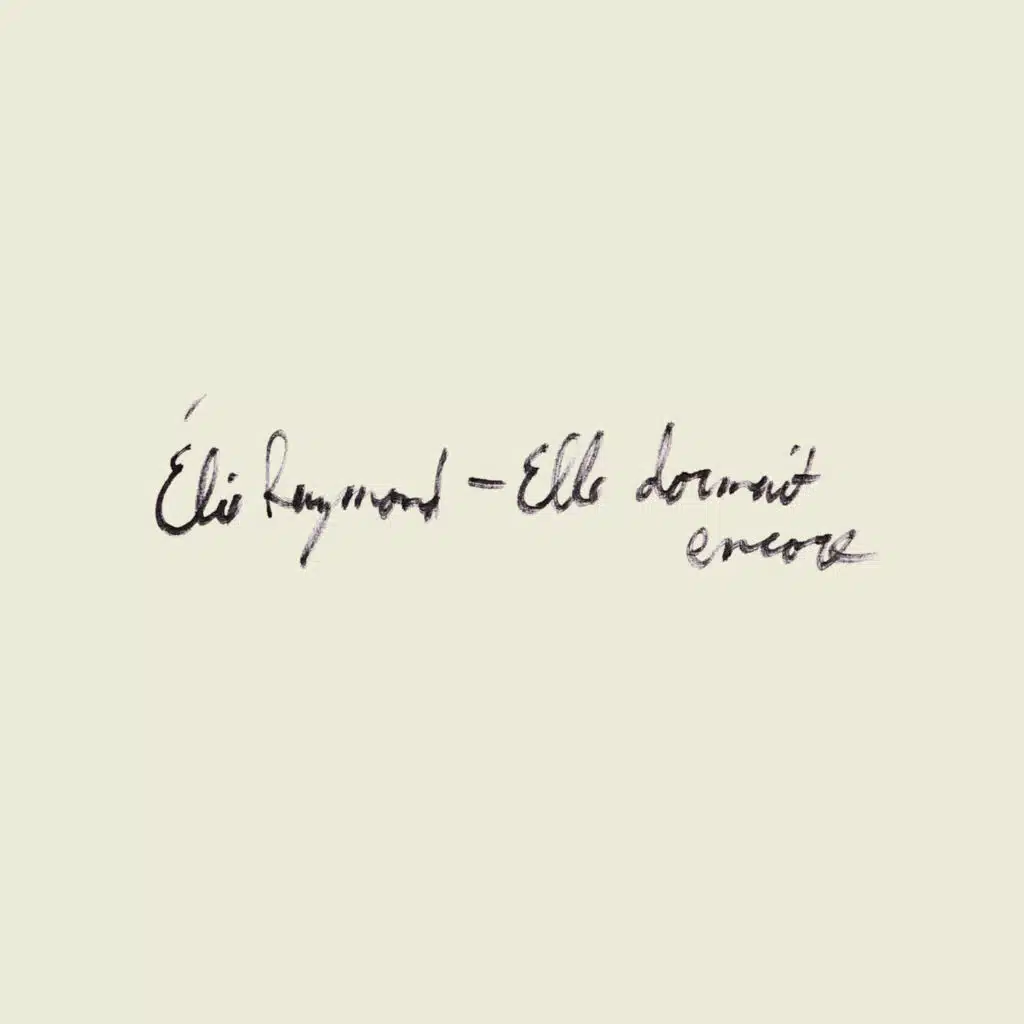 Élie Raymond - Elle dormait
encore